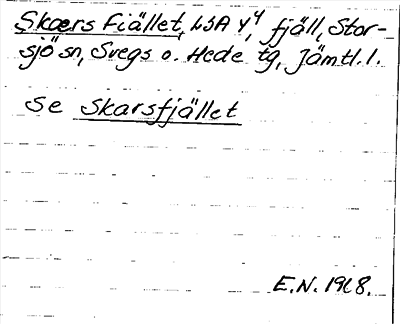 Skaers Fiället, LSA Y4, fjäll, Stor-
sjö sn, Svegs o. Hede tg, Jämtl. l.
se Skarsfjället
E.N. 1968.